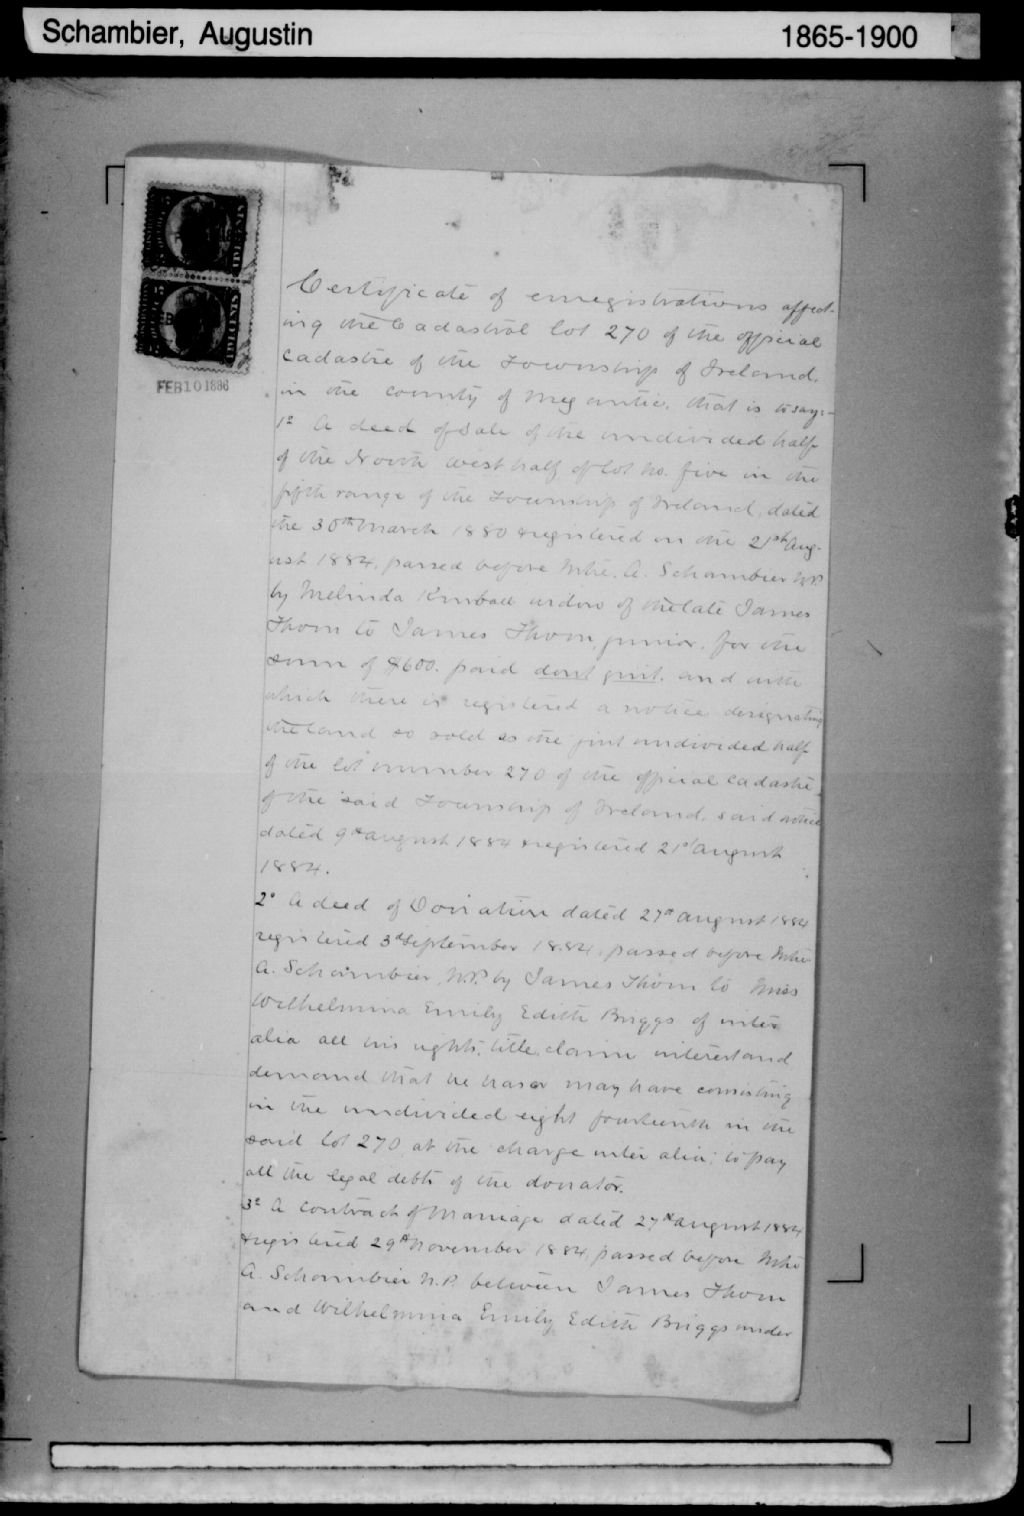 Schambier, Augustin 1865-1900
FEB 10 1886
Certificate of enregistrations affect-
ing the Cadastral lot 270 of the official
cadastre of the Township of Ireland,
in the county of Megantic, that is to say:-
1º A deed of Sale of the undivided half
of the North west half of lot No. five in the
fifth range of the Township of Ireland, dated
the 30th March 1880 & registered on the 21st Aug-
ust 1884, passed before Mtre. A. Schambier N.P.
by Melinda Kimball widow of the late James
Thom to James Thom, junior, for the
sum of $600. paid dont quit. and with
which there is registered a notice designating
the land so sold as the joint undivided half
of the lot number 270 of the official cadastre
of the said Township of Ireland, said notice
dated 9th August 1884 & registered 21st August
1884.
2º A deed of Donation dated 27th August 1884
registered 3d September 1884, passed before Mtre
A. Schambier, N.P. by James Thom to Miss
Wilhelmina Emily Edith Briggs of inter
alia all his rights, title, claim interest and
demand that he has or may have consisting
in the undivided eight fourteenth in the
said lot 270 at the charge inter alia; to pay
all the legal debts of the donator.
3º A contract of Marriage dated 27th August 1884
& registered 29th November 1884, passed before Mtre
A. Schambier N.P. between James Thom
and Wilhelmina Emily Edith Briggs under